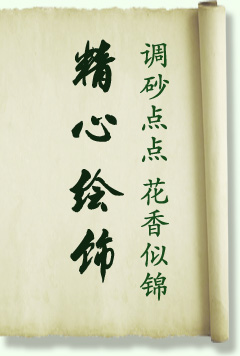 调砂点点 花香似锦
精心绘饰